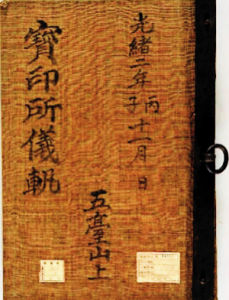 光緒二年丙子十一月 日
五臺山上
寶印所儀軌